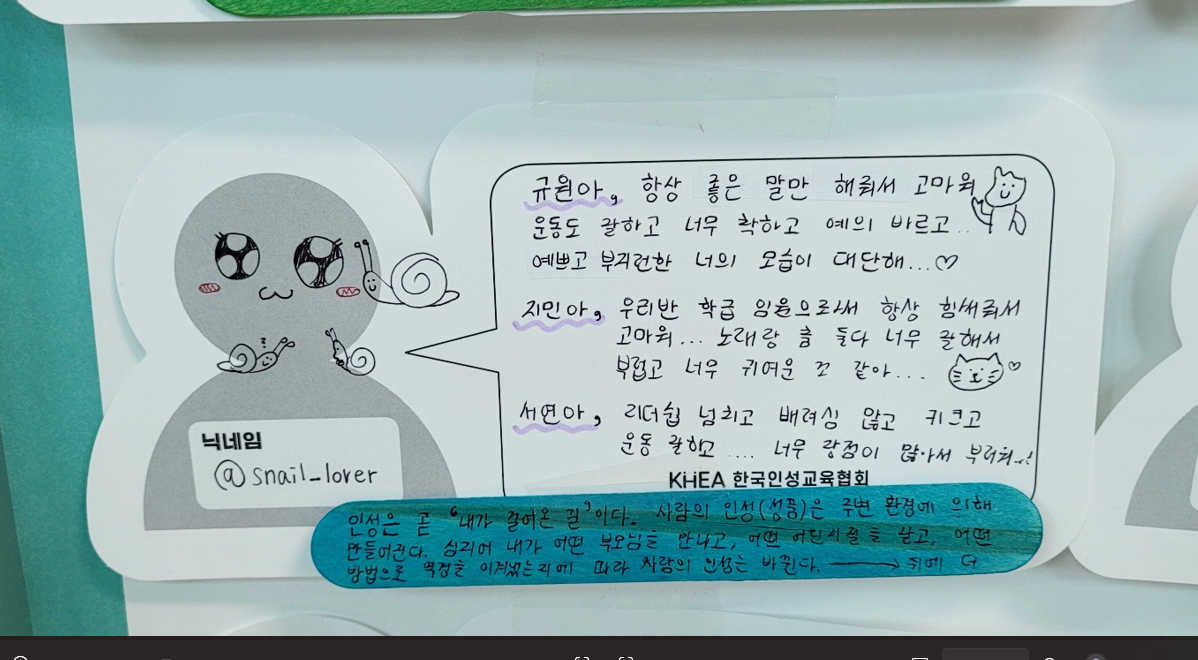 규원아, 항상 좋은 말만 해줘서 고마워
운동도 잘하고 너무 착하고 예의 바르고..
예쁘고 부지런한 너의 모습이 대단해...♡
지민아, 우리반 학급 임원으로써 항상 힘써줘서
고마워... 노래랑 춤 둘다 너무 잘해서
부럽고 너무 귀여운 것 같아...
서연아, 리더쉽 넘치고 배려심 많고 키크고
운동 잘하고 .... 너무 장점이 많아서 부러워..!
KHEA 한국인성교육협회
닉네임
@snail_lover
인성은 곧 '내가 걸어온 길'이다. 사람의 인성(성품)은 주변 환경에 의해
만들어진다. 심지어 내가 어떤 부모님을 만나고, 어떤 어린시절을 살고, 어떤
방법으로 역경을 이겨냈는지에 따라 사람의 인성는 바뀐다. → 뒤에 더